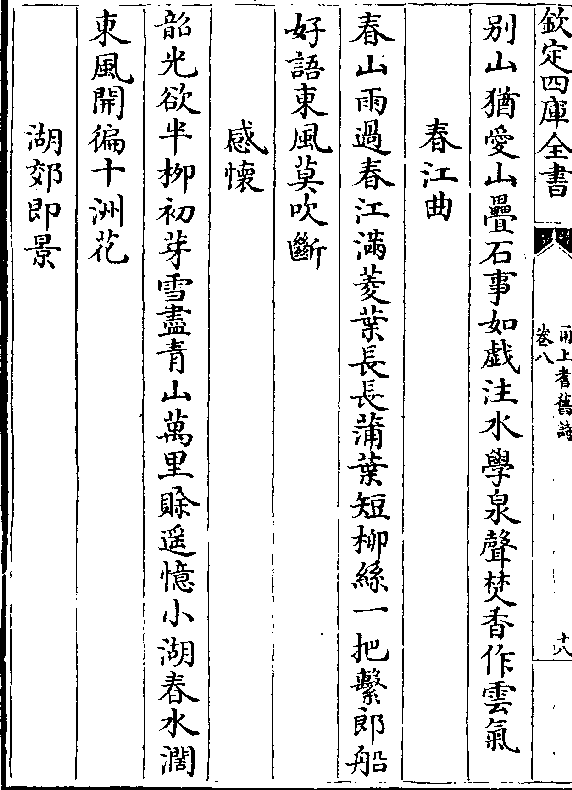 欽定四庫全書
甬上耆舊詩
卷八
十八
別山猶愛山疊石事如戲注水學泉聲焚香作雲氣
春江曲
春山雨過春江滿菱葉長長蒲葉短柳絲一把繫郎船
好語東風莫吹斷
感懷
韶光欲半柳初芽雪盡青山萬里賒遥憶小湖春水濶
東風開徧十洲花
湖郊即景